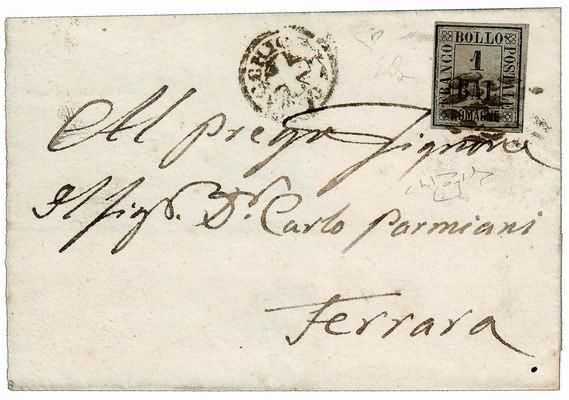 FRANCO BOLLO POSTALE
1
BAI
ROMAGNE
Al Prego Signore
Il Sigr. Dr. Carlo Parmiani
Ferrara